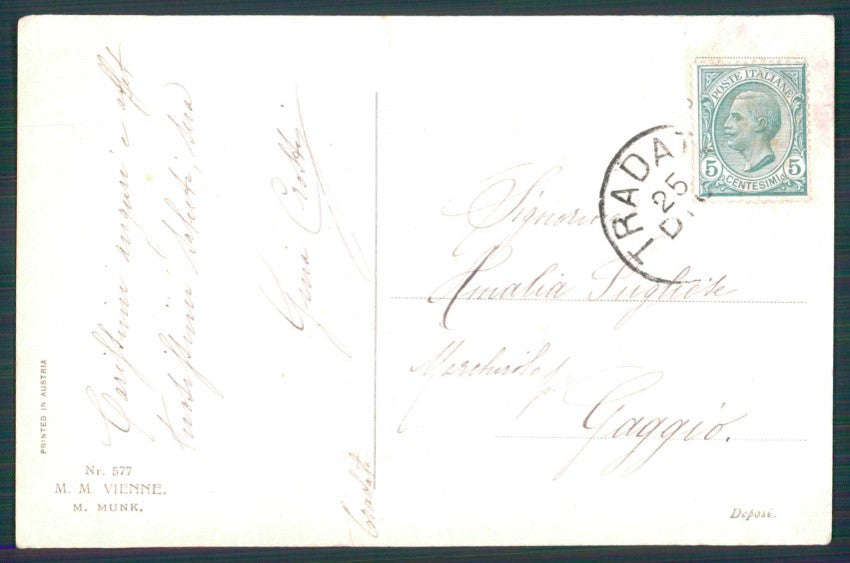 Carissimi auguri e affet
tuosissimi saluti, tua
Gina
PRINTED IN AUSTRIA
Nr. 577
M. M. VIENNE.
M. MUNK.
POSTE ITALIANE
5 5
CENTESIMI
TRADA
25
Signorina
Amalia Pugliese
Marchirolo p
Gaggio.
Deposé.